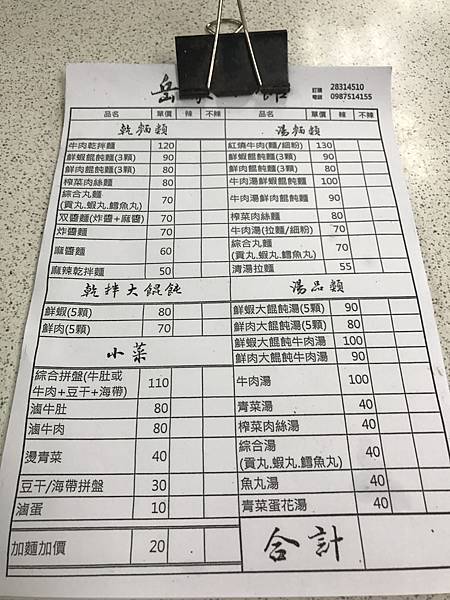 岳 館
訂購 28314510
電話 0987514155
品名 單價 辣 不辣 品名 單價 辣 不辣
乾麵類
牛肉乾拌麵 120
鮮蝦餛飩麵(3顆) 90
鮮肉餛飩麵(3顆) 80
榨菜肉絲麵 80
綜合丸麵
(貢丸.蝦丸.鱈魚丸) 70
双醬麵(炸醬+麻醬) 70
炸醬麵 70
麻醬麵 60
麻辣乾拌麵 50
乾拌大餛飩
鮮蝦(5顆) 80
鮮肉(5顆) 70
小菜
綜合拼盤(牛肚或
牛肉+豆干+海帶) 110
滷牛肚 80
滷牛肉 80
燙青菜 40
豆干/海帶拼盤 30
滷蛋 10
加麵加價 20
湯麵類
紅燒牛肉(麵/細粉) 130
鮮蝦餛飩麵(3顆) 90
鮮肉餛飩麵(3顆) 80
牛肉湯鮮蝦餛飩麵 100
牛肉湯鮮肉餛飩麵 90
榨菜肉絲麵 80
牛肉湯(拉麵/細粉) 70
綜合丸麵
(貢丸.蝦丸.鱈魚丸) 70
清湯拉麵 55
湯品類
鮮蝦大餛飩湯(5顆) 90
鮮肉大餛飩湯(5顆) 80
鮮蝦大餛飩牛肉湯 100
鮮肉大餛飩牛肉湯 90
牛肉湯 100
青菜湯 40
榨菜肉絲湯 40
綜合湯
(貢丸.蝦丸.鱈魚丸) 40
魚丸湯 40
青菜蛋花湯 40
合計